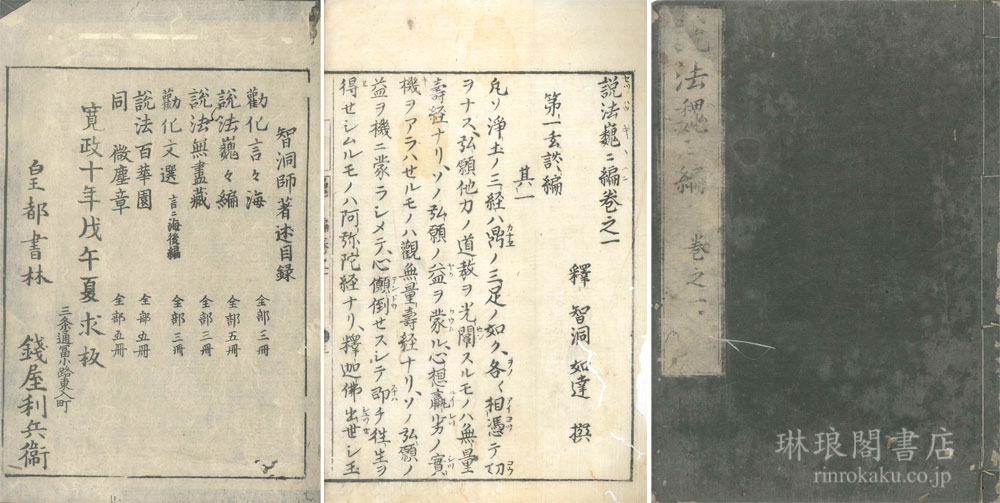 説法巍〻編 巻之一
説法巍〻編巻之一
釋 智洞 如達 撰
第一玄談編
其一
凡ソ浄土ノ三経ハ鼎ノ三足ノ如ク、各〻相憑テ功
ヲナス、弘願他力ノ道教ヲ光闡スルモノハ無量
壽経ナリ、ソノ弘願ノ益ヲ蒙ル心想羸劣ノ實
機ヲアラハセルモノハ觀無量壽経ナリ、ソノ弘願ノ
益ヲ機ニ蒙ラシメテ、心顛倒セスシテ即チ往生ヲ
得せシムルモノハ阿弥陀経ナリ、釋迦佛出世シ玉
智洞師著述目録
勸化言々海 全部三冊
説法巍々編 全部五冊
説法無盡藏 全部三冊
勸化文選 言々海後編 全部三冊
説法百華園 全部五冊
同 微塵章 全部五冊
寛政十年戊午夏求板
三条通冨小路東入町
皇都書林 錢屋利兵衞
琳琅閣書店
rinrokaku.co.jp